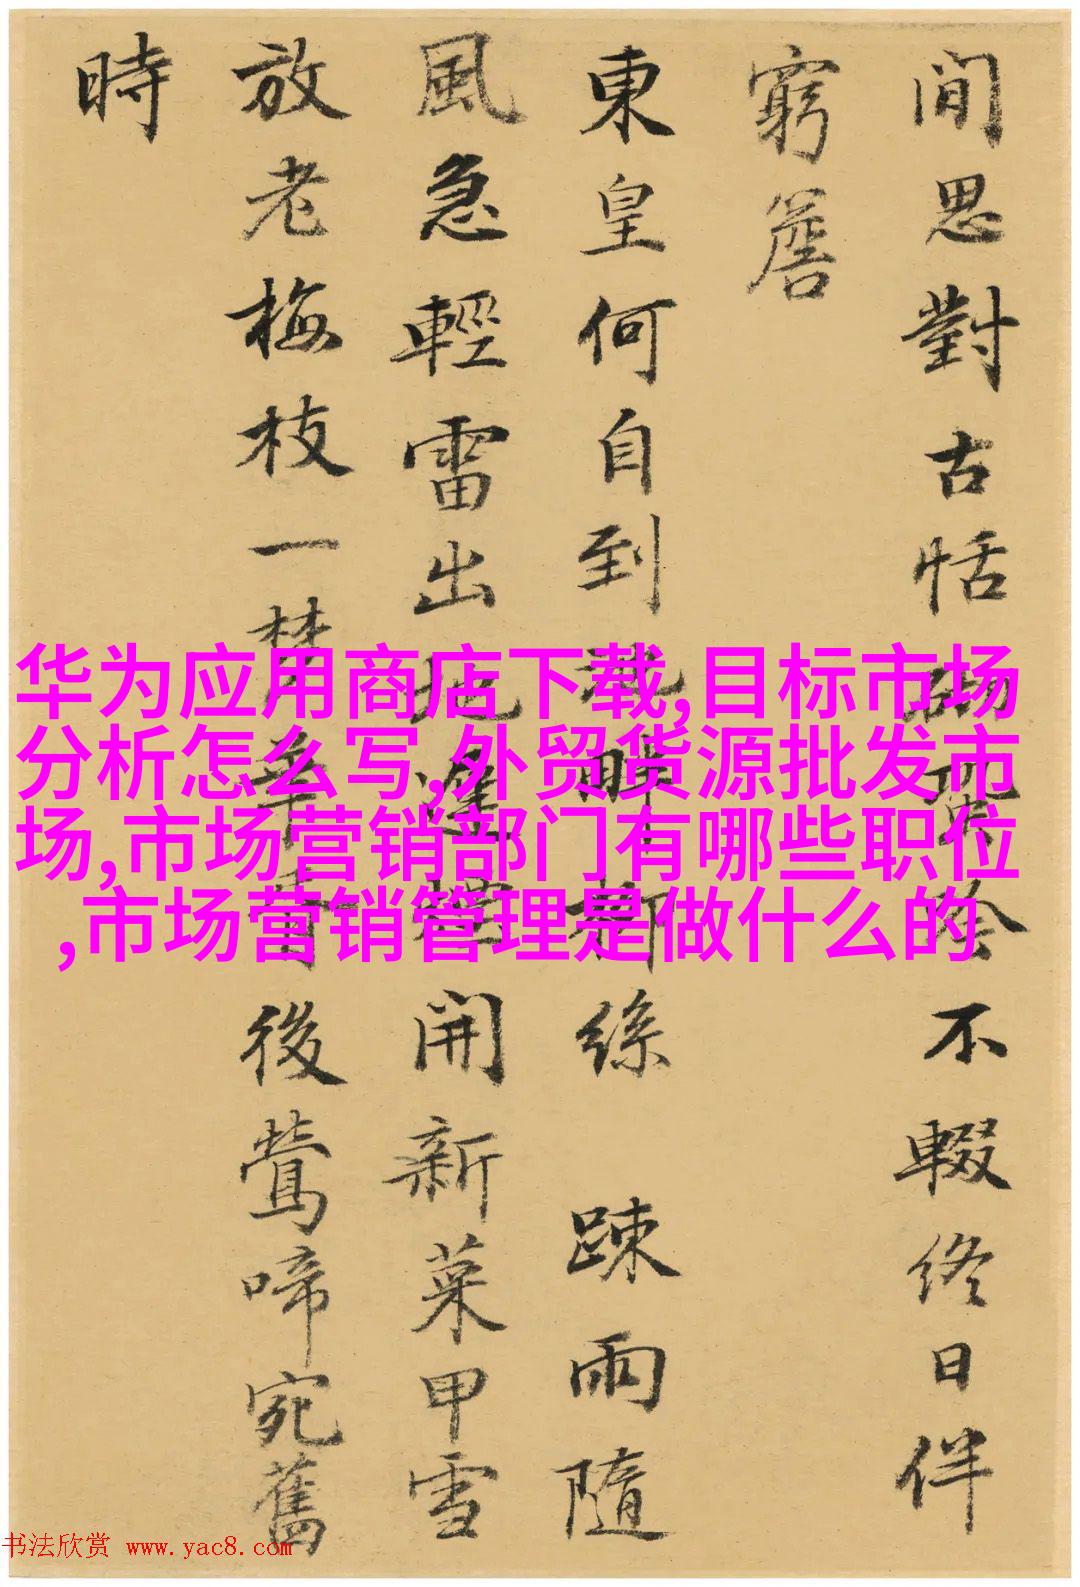 閒思對古恬吟不輟終日伴
窮簷
東皇何自到池畔柳絲踈雨隨
風急輕雷出地逢開新菜甲雪
放老梅枝一香後鶯啼宛舊
時
华为应用商店下载,目标市场
分析怎么写,外贸货源批发市
场,市场营销部门有哪些职位
,市场营销管理是做什么的
书法欣赏 www.yac8.com